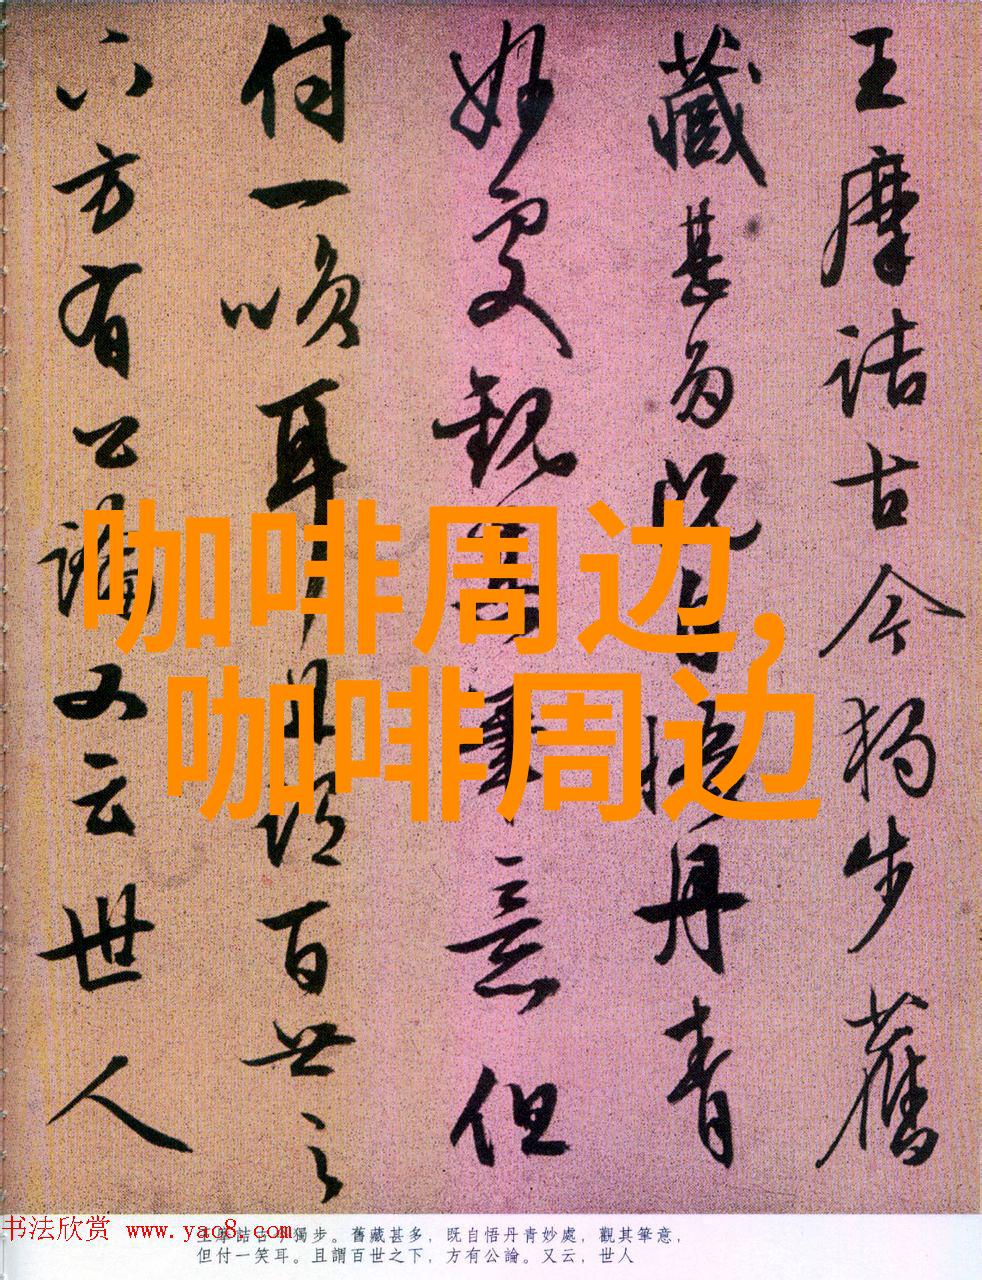 王摩詰古今獨步舊
藏甚多既自悟丹青
妙處觀其筆意但
付一笑耳且謂百世之
下方有公論又云世人
咖啡周边,
咖啡周边
书法欣赏 www.yac8.com
王摩詰古今獨步。舊藏甚多，既自悟丹青妙處，觀其筆意，
但付一笑耳。且謂百世之下，方有公論。又云，世人